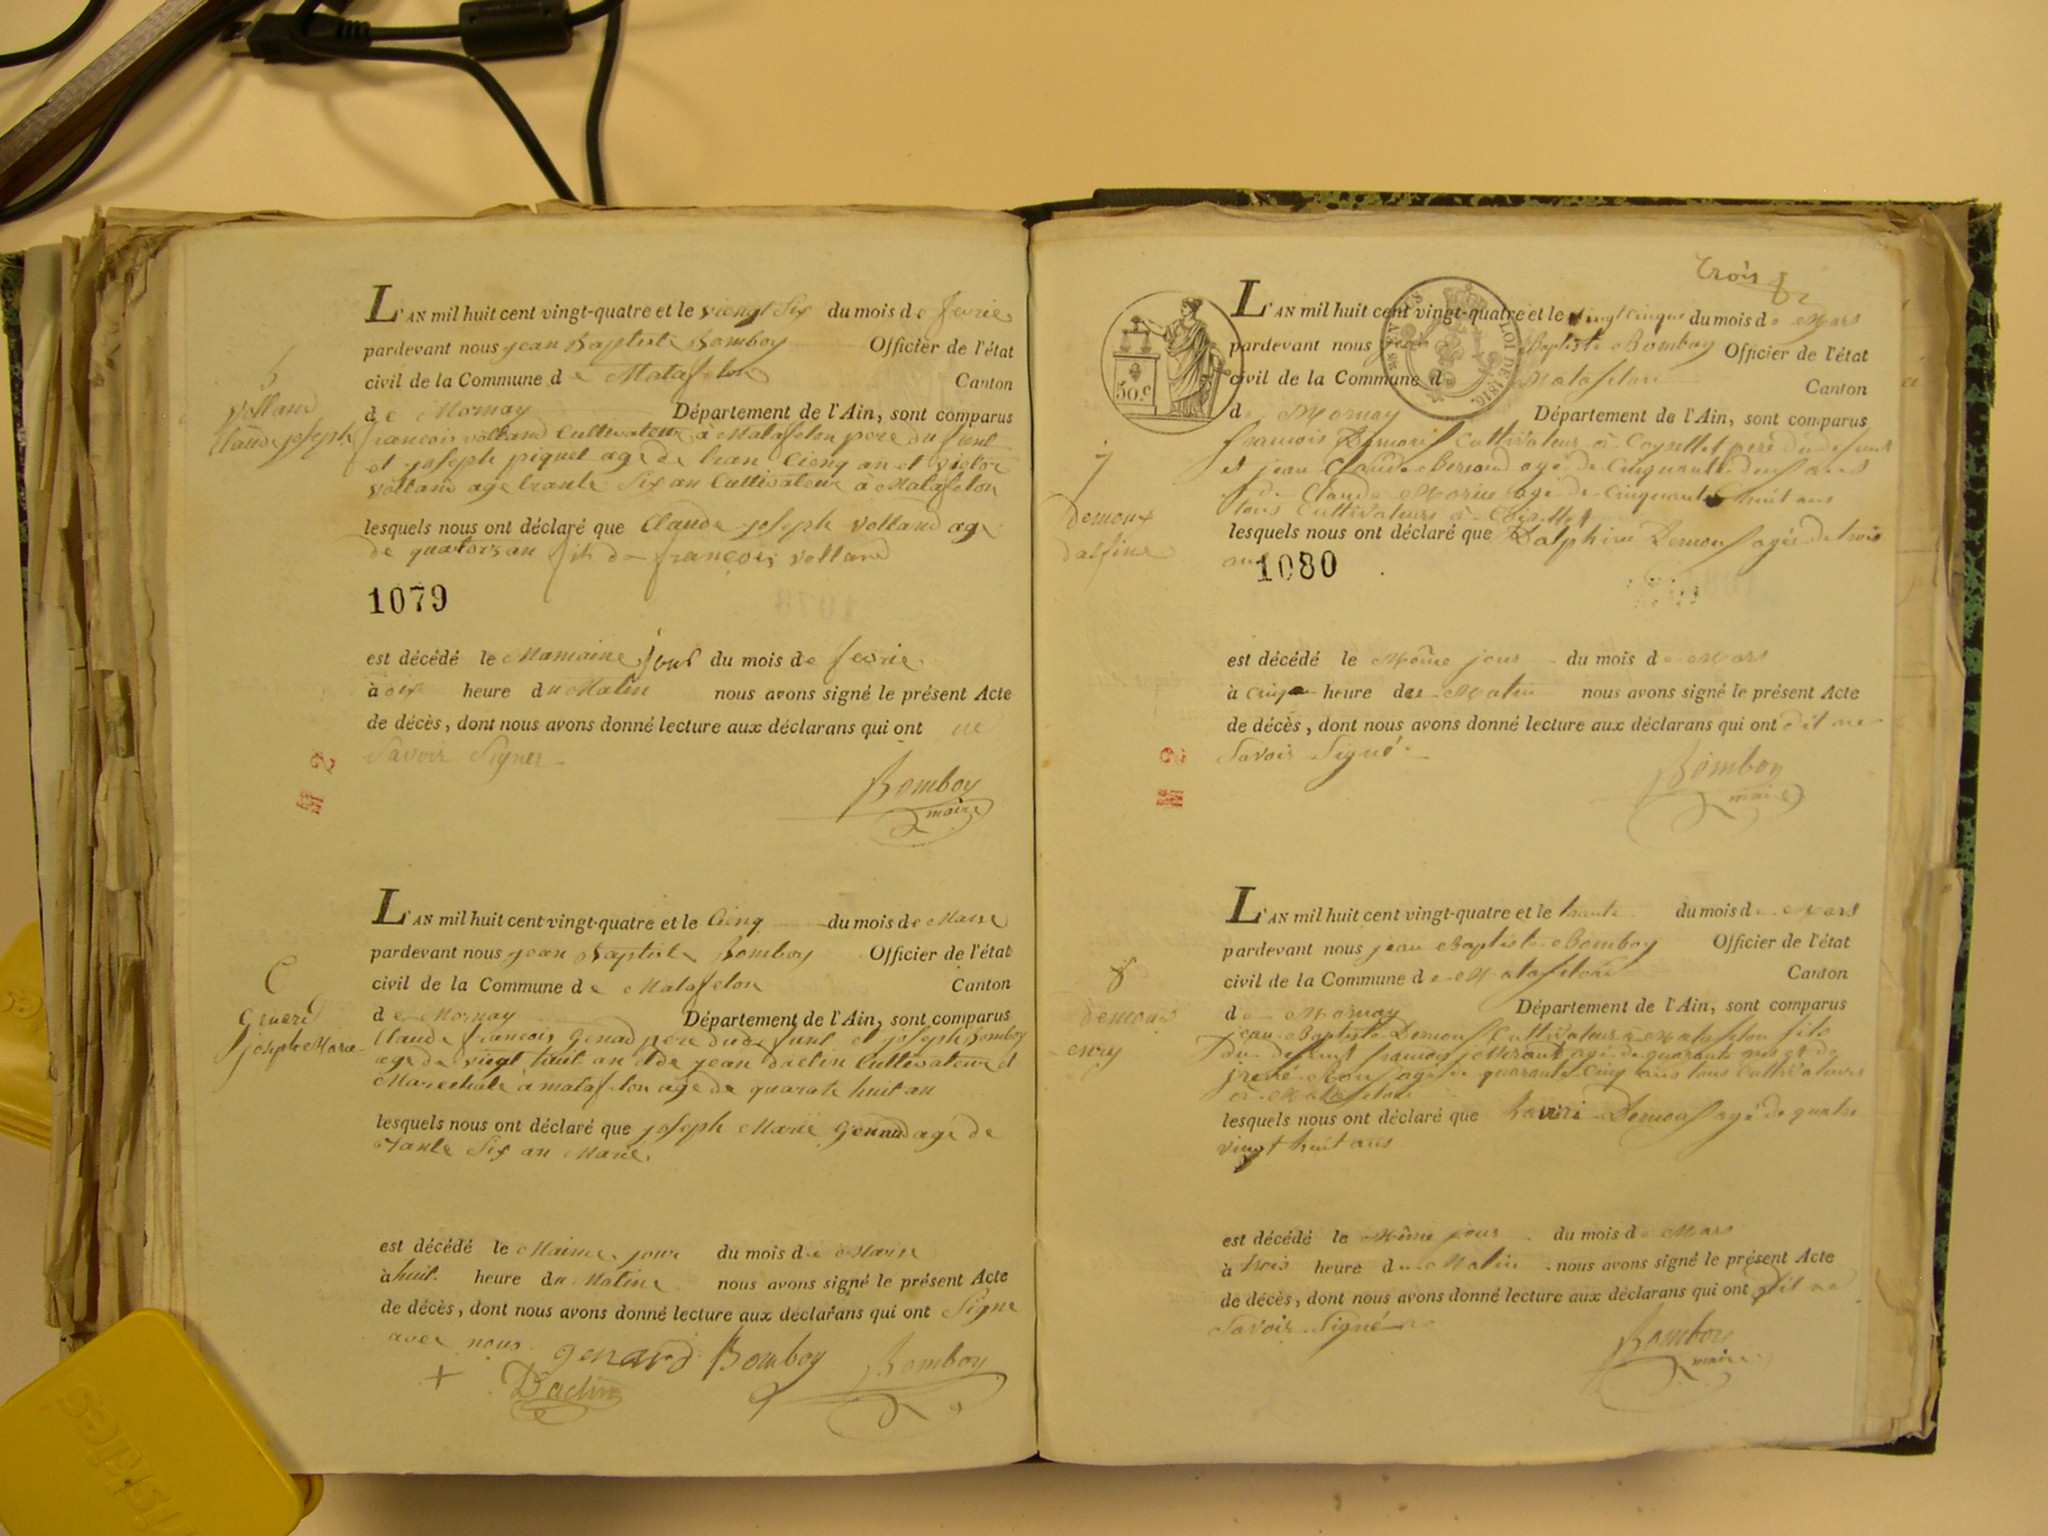 5
Volland
Claude joseph
L'AN mil huit cent vingt-quatre et le viengt Six du mois de fevrie
pardevant nous jean Baptiste Bomboy Officier de l'état
civil de la Commune de Matafelon Canton
de Mornay Département de l'Ain, sont comparus
francois volland Cultivateur à Matafelon pere du funt
et joseph piquet age de tran Cienq an et victor
Volland age trante Six an Cultivateur à Matafelon
lesquels nous ont déclaré que Claude joseph Volland age
de quatorz an fils de francois volland
1079
est décédé le Mamaine jour du mois de fevrie
à six heure du Matin nous avons signé le présent Acte
de décès, dont nous avons donné lecture aux déclarans qui ont ne
Savoir Signer
Bomboy
maire
joseph Marie
L'AN mil huit cent vingt-quatre et le Cienq du mois de Marse
pardevant nous jean Baptiste Bomboy Officier de l'état
civil de la Commune de Matafelon Canton
de Mornay Département de l'Ain, sont comparus
Claude francois Genad pere du de funt et joseph Bomboy
age de vingt huit an et de jean daclin Cultivateur et
Marechale à matafelon age de quarate huit an
lesquels nous ont déclaré que joseph Marie Gennad age de
trante Six an Marie
est décédé le Maime jour du mois de Marse
à huit heure du Matine nous avons signé le présent Acte
de décès, dont nous avons donné lecture aux déclarans qui ont Signe
avec nous genard Bomboy Bomboy
Daclin
trois
50c
LOI DE 1816
7
demoux
dalfine
L'AN mil huit cent vingt-quatre et le vingt cinque du mois de Mars
pardevant nous Baptiste Bomboy Officier de l'état
civil de la Commune d Matafelon Canton
de Mornay Département de l'Ain, sont comparus
francois Cultivateur à Coysellet peré du defunt
et jean Claude Bersoud agé de Cinquante deux ans
et de Claude Morin agé de Cinquante huit ans
tous Cultivateurs à
lesquels nous ont déclaré que Dalphine Demous agée de trois
ans
1080
est décédé le Même jour du mois de Mars
à Cinq heure du Matin nous avons signé le présent Acte
de décès, dont nous avons donné lecture aux déclarans qui ont dit ne
Savoir Signé
Bomboy
maire
8
demous
enry
L'AN mil huit cent vingt-quatre et le trante du mois de Mars
pardevant nous jean Baptiste Bomboy Officier de l'état
civil de la Commune de Matafelon Canton
de Mornay Département de l'Ain, sont comparus
jean Baptiste Demous Cultivateur à Matafelon fils
du defunt agé de quarante et de
agé de quarante Cinq ans tous Cultivateurs
à Matafelon
lesquels nous ont déclaré que Demous agé de quatre
vingt huit ans
est décédé le Même jour du mois de Mars
à trois heure du Matin nous avons signé le présent Acte
de décès, dont nous avons donné lecture aux déclarans qui ont dit ne
Savoir Signé
Bomboy
maire